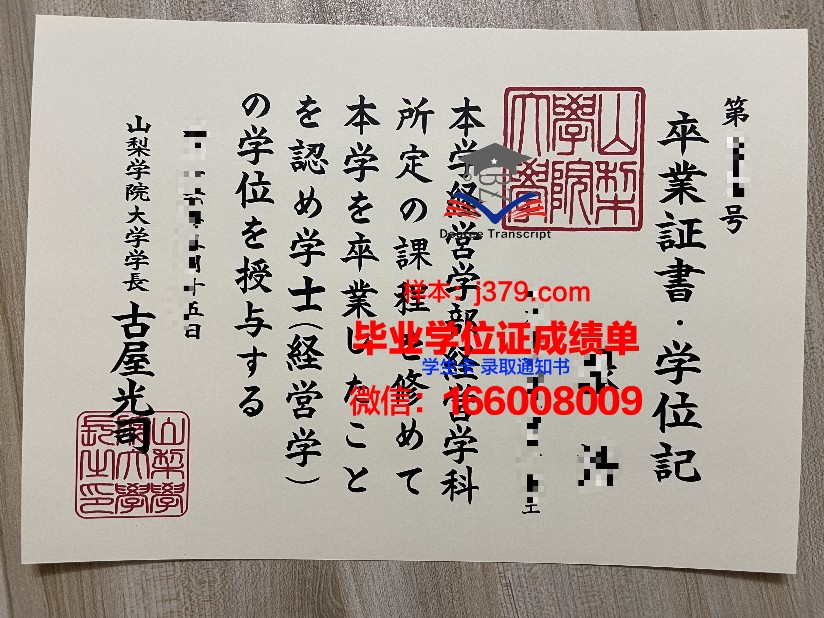 第
号
卒業証書・学位記
山梨
學院
大學
本学経営学部経営学科
所定の課程を修めて
本学を卒業したこと
を認め学士(経営学)
の学位を授与する
十五日
山梨学院大学学長 古屋光司
山梨學
院大學
長之印
Degree Transcript
样本：j379.com
毕业学位证成绩单
学生卡·录取通知书
微信：166008009